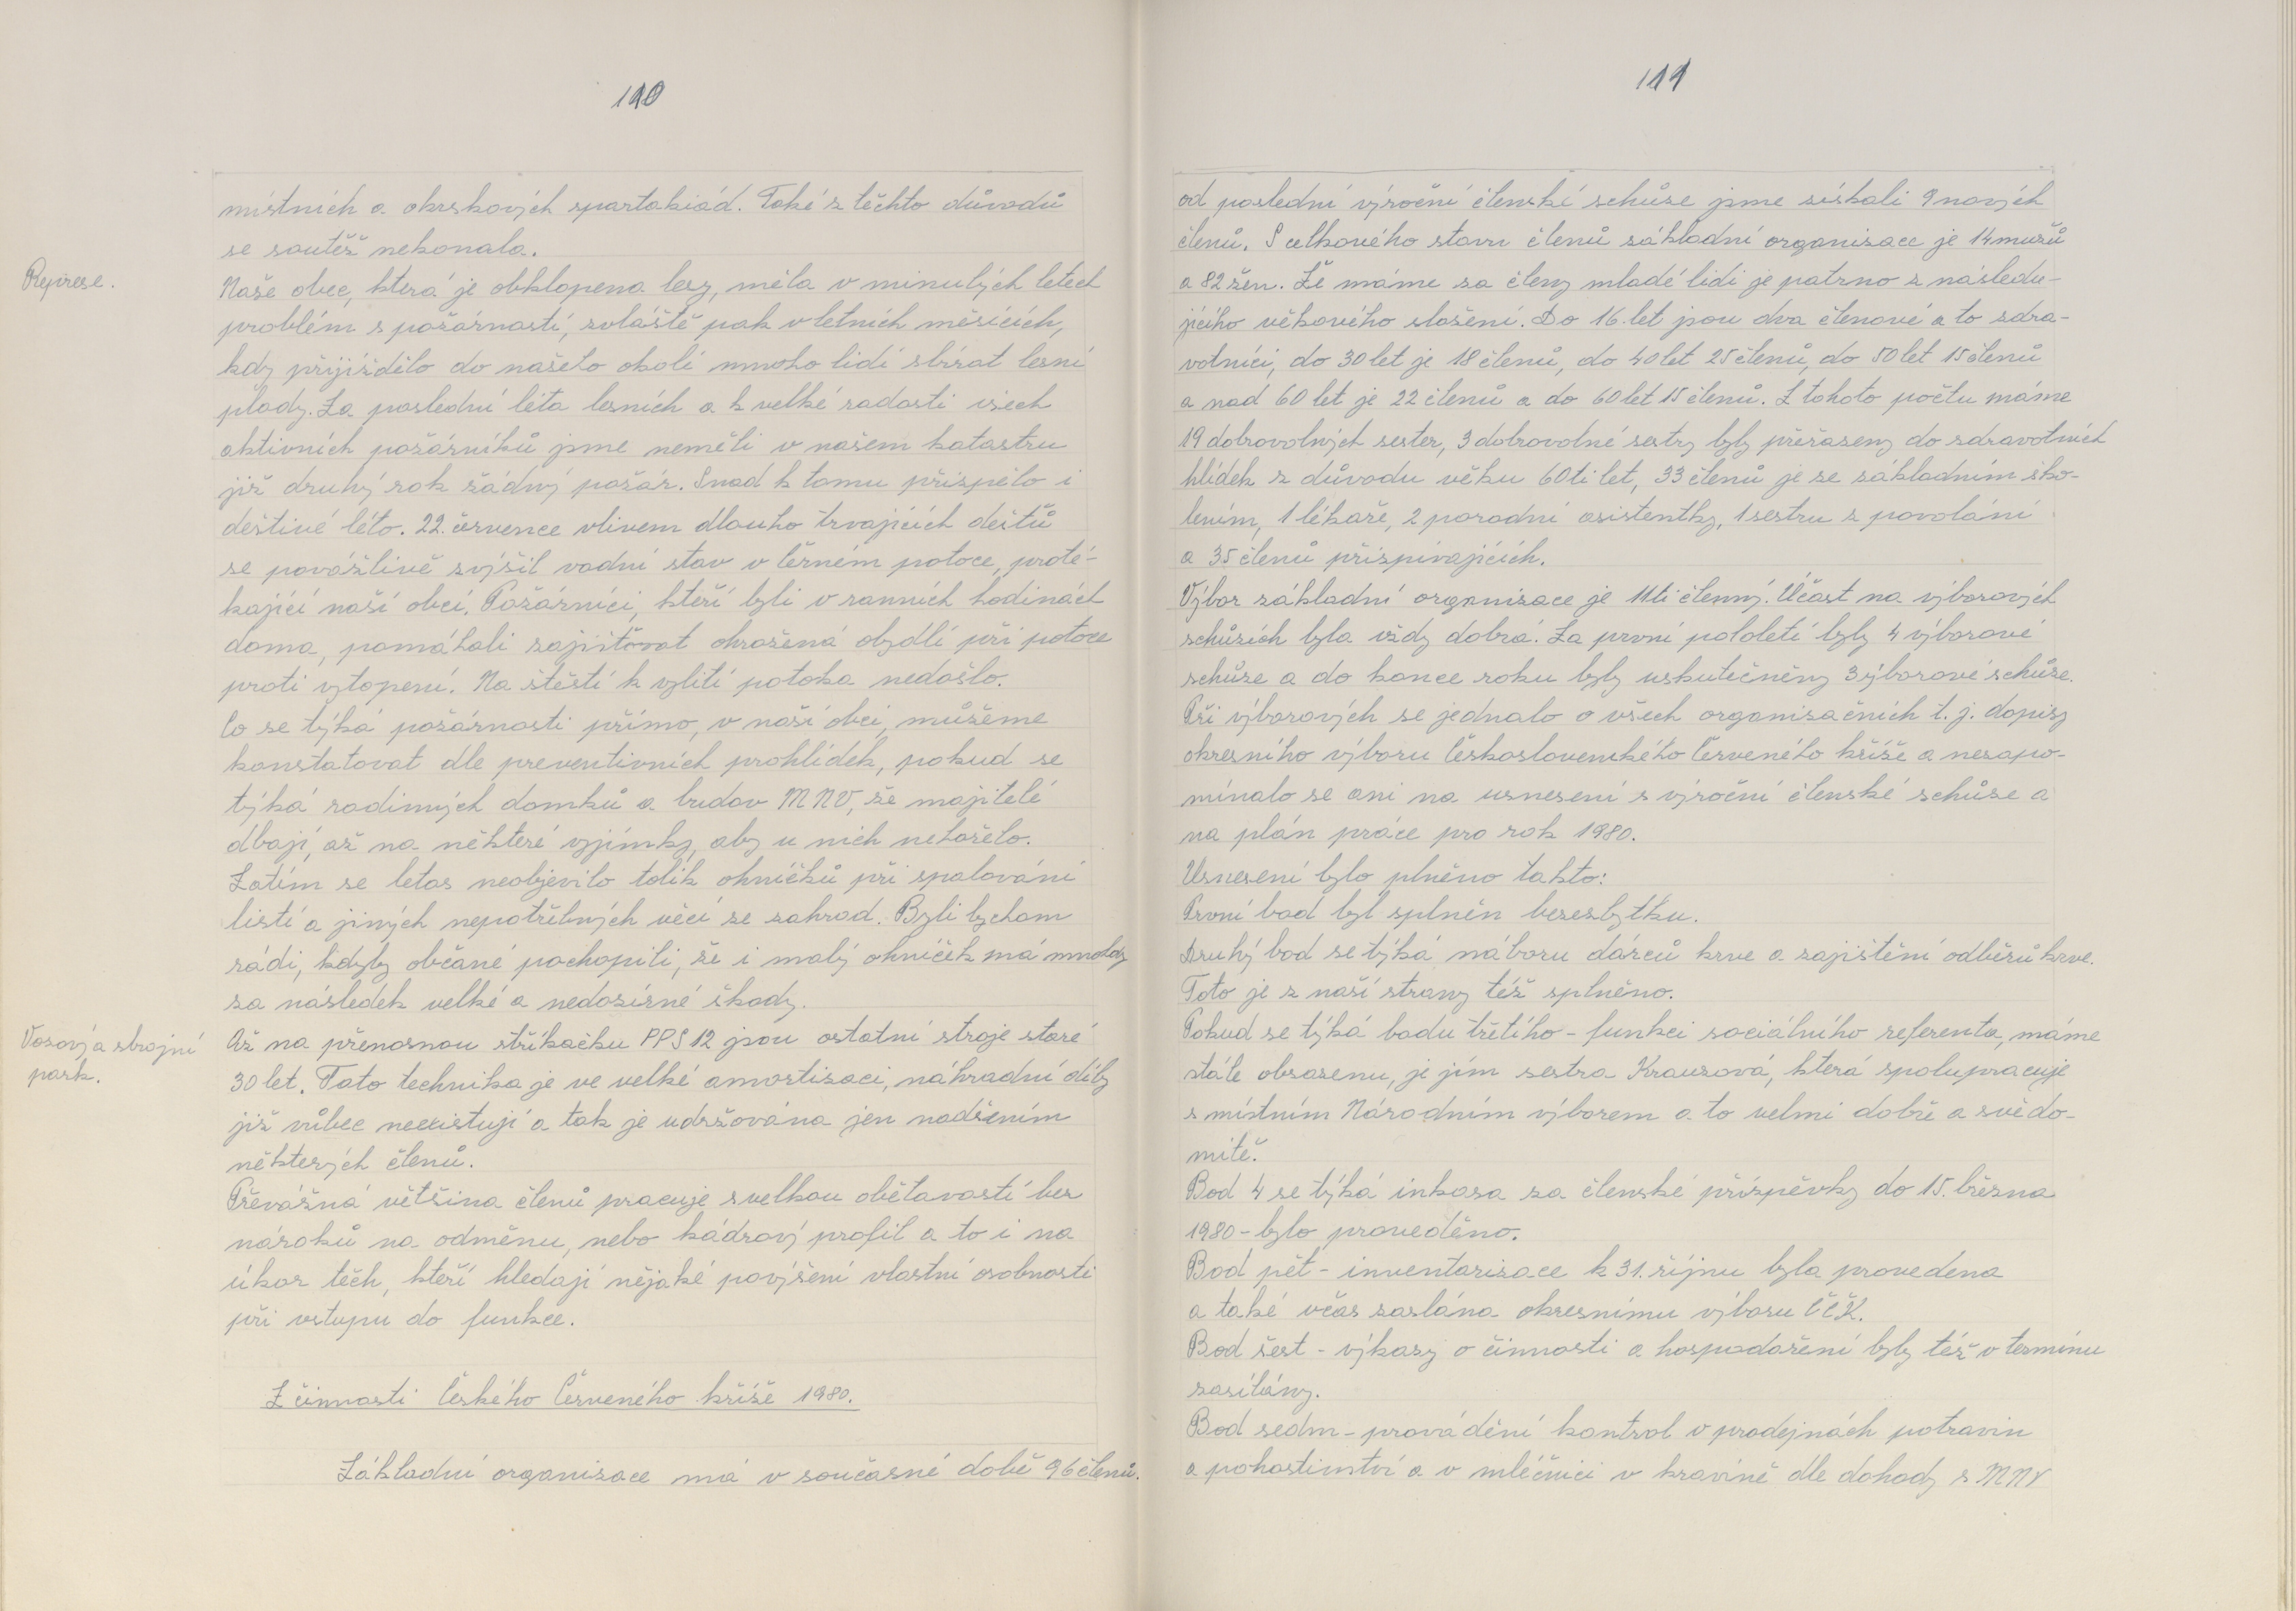 110
místních a okrskových spartakiád. Také z těchto důvodů
se soutěž nekonala.
Represe.
Naše obec, která je obklopena lesy, měla v minulých letech
problém s požárností, zvláště pak v letních měsících,
kdy přijíždělo do našeho okolí mnoho lidí sbírat lesní
plody. Za poslední léta lesních a k velké radosti všech
aktivních požárníků jsme neměli v našem katastru
již druhý rok žádný požár. Snad k tomu přispělo i
deštivé léto. 22. července vlivem dlouho trvajících dešťů
se povážlivě zvýšil vodní stav v Černém potoce, proté-
kající naší obcí. Požárníci, kteří byli v ranních hodinách
doma, pomáhali zajišťovat ohrožená obydlí při potoce
proti vytopení. Na štěstí k vylití potoka nedošlo.
Co se týká požárnosti přímo, v naší obci, můžeme
konstatovat dle preventivních prohlídek, pokud se
týká rodinných domků a budov MNV, že majitelé
dbají, až na některé vyjímky, aby u nich nehořelo.
Zatím se letos neobjevilo tolik ohníčků při spalování
listí a jiných nepotřebných věcí ze zahrad. Byli bychom
rádi, kdyby občané pochopili, že i malý ohníček má mnohdy
za následek velké a nedozírné škody.
Vozový a strojní
park.
Až na přenosnou stříkačku PPS 12 jsou ostatní stroje staré
30 let. Tato technika je ve velké amortizaci, náhradní díly
již vůbec neexistují a tak je udržována jen nadšením
některých členů.
Převážná většina členů pracuje s velkou obětavostí bez
nároků na odměnu, nebo kádrový profil a to i na
úkor těch, kteří hledají nějaké povýšení vlastní osobnosti
při vstupu do funkce.
Z činnosti Českého Červeného kříže 1980.
Základní organizace má v současné době 96 členů.
111
od poslední výroční členské schůze jsme získali 9 nových
členů. S celkového stavu členů základní organizace je 14 mužů
a 82 žen. Že máme za členy mladé lidi je patrno z následu-
jícího věkového složení. Do 16. let jsou dva členové a to zdra-
votníci, do 30 let je 18 členů, do 40 let 25 členů, do 50 let 15 členů
a nad 60 let je 22 členů a do 60 let 15 členů. Z tohoto počtu máme
19 dobrovolných sester, 3 dobrovolné sestry byly přeřazeny do zdravotních
hlídek z důvodu věku 60ti let, 33 členů je se základním ško-
lením, 1 lékaře, 2 porodní asistentky, 1 sestru z povolání
a 35 členů přispívajících.
Výbor základní organizace je 11ti členný. Účast na výborových
schůzích byla vždy dobrá. Za první pololetí byly 4 výborové
schůze a do konce roku byly uskutečněny 3 výborové schůze.
Při výborových se jednalo o všech organizačních t. j. dopisy
okresního výboru Československého Červeného kříže a nezapo-
mínalo se ani na usnesení s výroční členské schůze a
na plán práce pro rok 1980.
Usnesení bylo plněno takto:
První bod byl splněn bezezbytku.
Druhý bod se týká náboru dárců krve a zajištění odběrů krve.
Toto je z naší strany též splněno.
Pokud se týká bodu třetího - funkci sociálního referenta, máme
stále obsazenu, je jím sestra Krauzová, která spolupracuje
s místním Národním výborem a to velmi dobře a svědo-
mitě.
Bod 4 se týká inkasa za členské příspěvky do 15. března
1980 - bylo provedeno.
Bod pět - inventarizace k 31. říjnu byla provedena
a také včas zaslána okresnímu výboru ČČK.
Bod šest - výkazy o činnosti a hospodaření byly též v termínu
zasílány.
Bod sedm - provádění kontrol v prodejnách potravin
a pohostinství a v mléčnici v kravíně dle dohody s MNV